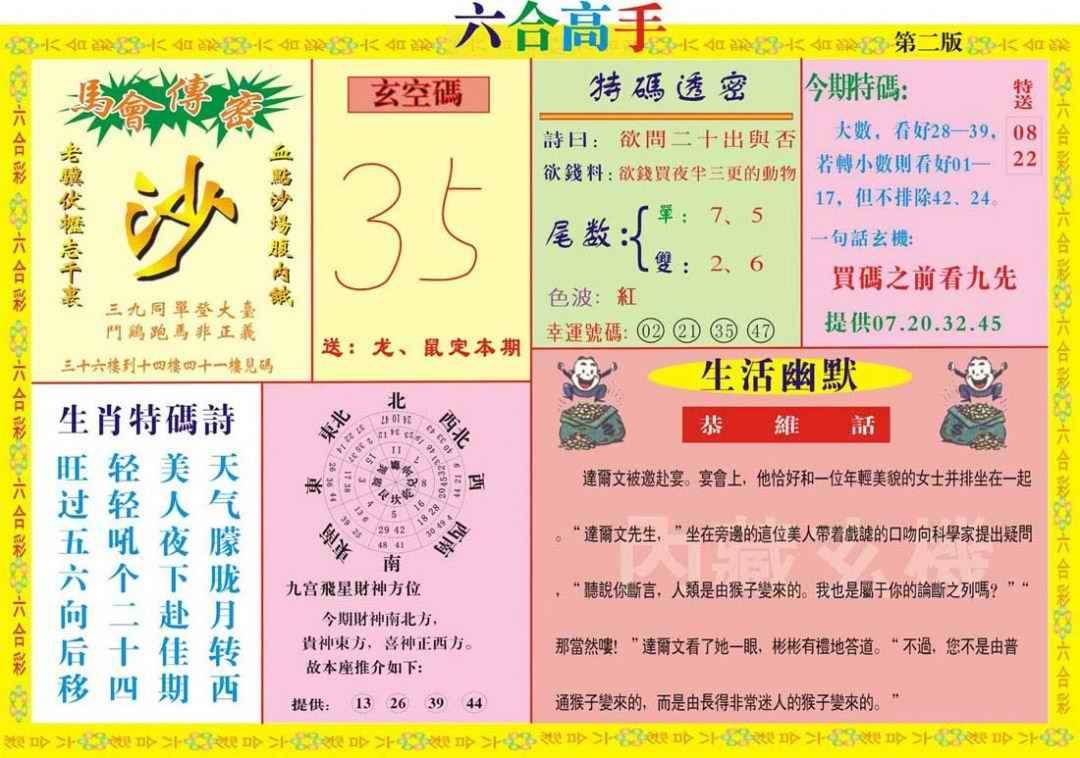 六合高手
第二版
馬會傳密
老驥伏櫪志千裏
沙
血點沙場腹内飢
三九同單登大臺
門鷄跑馬非正義
三十六樓到十四樓四十一樓見碼
玄空碼
35
送：龙、鼠定本期
特碼透密
詩曰：欲問二十出與否
欲錢料:欲錢買夜半三更的動物
尾数:
單：7、5
雙：2、6
色波：紅
幸運號碼: 02 21 35 47
今期特碼:
特送
08
22
大數，看好28—39，
若轉小數則看好01—
17，但不排除42、24。
一句話玄機:
買碼之前看九先
提供07.20.32.45
生肖特碼詩
天气朦胧月转西
美人夜下赴佳期
轻轻吼个二十四
旺过五六向后移
北
西北
西
西南
南
東南
東
東北
九宫飛星財神方位
今期財神南北方，
貴神東方，喜神正西方。
故本座推介如下:
提供: 13 26 39 44
生活幽默
恭維話
達爾文被邀赴宴。宴會上，他恰好和一位年輕美貌的女士并排坐在一起
。“達爾文先生，”坐在旁邊的這位美人帶着戲謔的口吻向科學家提出疑問
，“聽説你斷言，人類是由猴子變來的。我也是屬于你的論斷之列嗎？”“
那當然嘍！”達爾文看了她一眼，彬彬有禮地答道。“不過，您不是由普
通猴子變來的，而是由長得非常迷人的猴子變來的。”
内藏玄機
六合彩